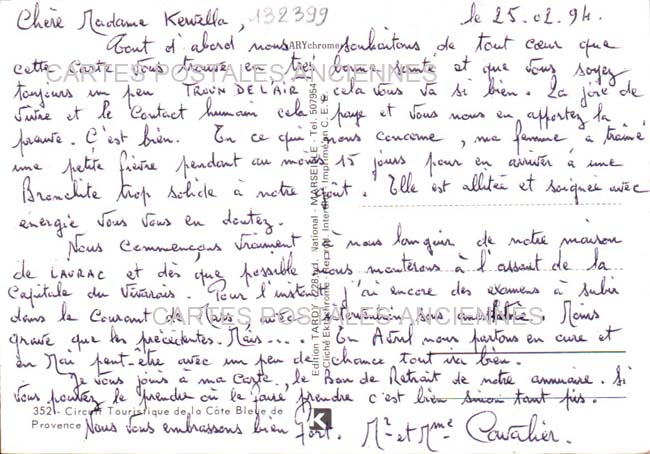 Chère Madame Kervella, 132399 le 25.02.94.
Tout d'abord nous souhaitons de tout cœur que
cette Carte vous trouve en très bonne santé et que vous soyez
toujours un peu TROUN DE L'AIR cela vous va si bien. La joie de
vivre et le Contact humain cela paye et vous nous en apportez la
preuve. C'est bien. En ce qui nous concerne, ma femme a traîné
une petite fièvre pendant au moins 15 jours pour en arriver à une
Bronchite trop solide à notre goût. Elle est alitée et soignée avec
énergie vous vous en doutez.
Nous Commençons vraiment à nous languir de notre maison
de LAURAC et dès que possible nous monterons à l'assaut de la
Capitale du Vivarais. Pour l'instant j'ai encore des examens à subir
dans le Courant de Mars, avec intervention sous Moins
grave que les précédentes. Mais.... En Avril nous partons en cure et
en Mai peut-être avec un peu de chance tout ira bien.
Je vous joins à ma Carte, le Bon de Retrait de notre annuaire. Si
vous pouvez le prendre ou le faire prendre c'est bien sinon tant pis.
Nous vous embrassons bien fort. Mr et Mme Cavalier.
3521- Circuit Touristique de la Côte Bleue de
Provence
K
Edition TARDY - 228, bd. National - MARSEILLE - Tel. 507954
CARTES POSTALES ANCIENNES
CARTES POSTALES ANCIENNES